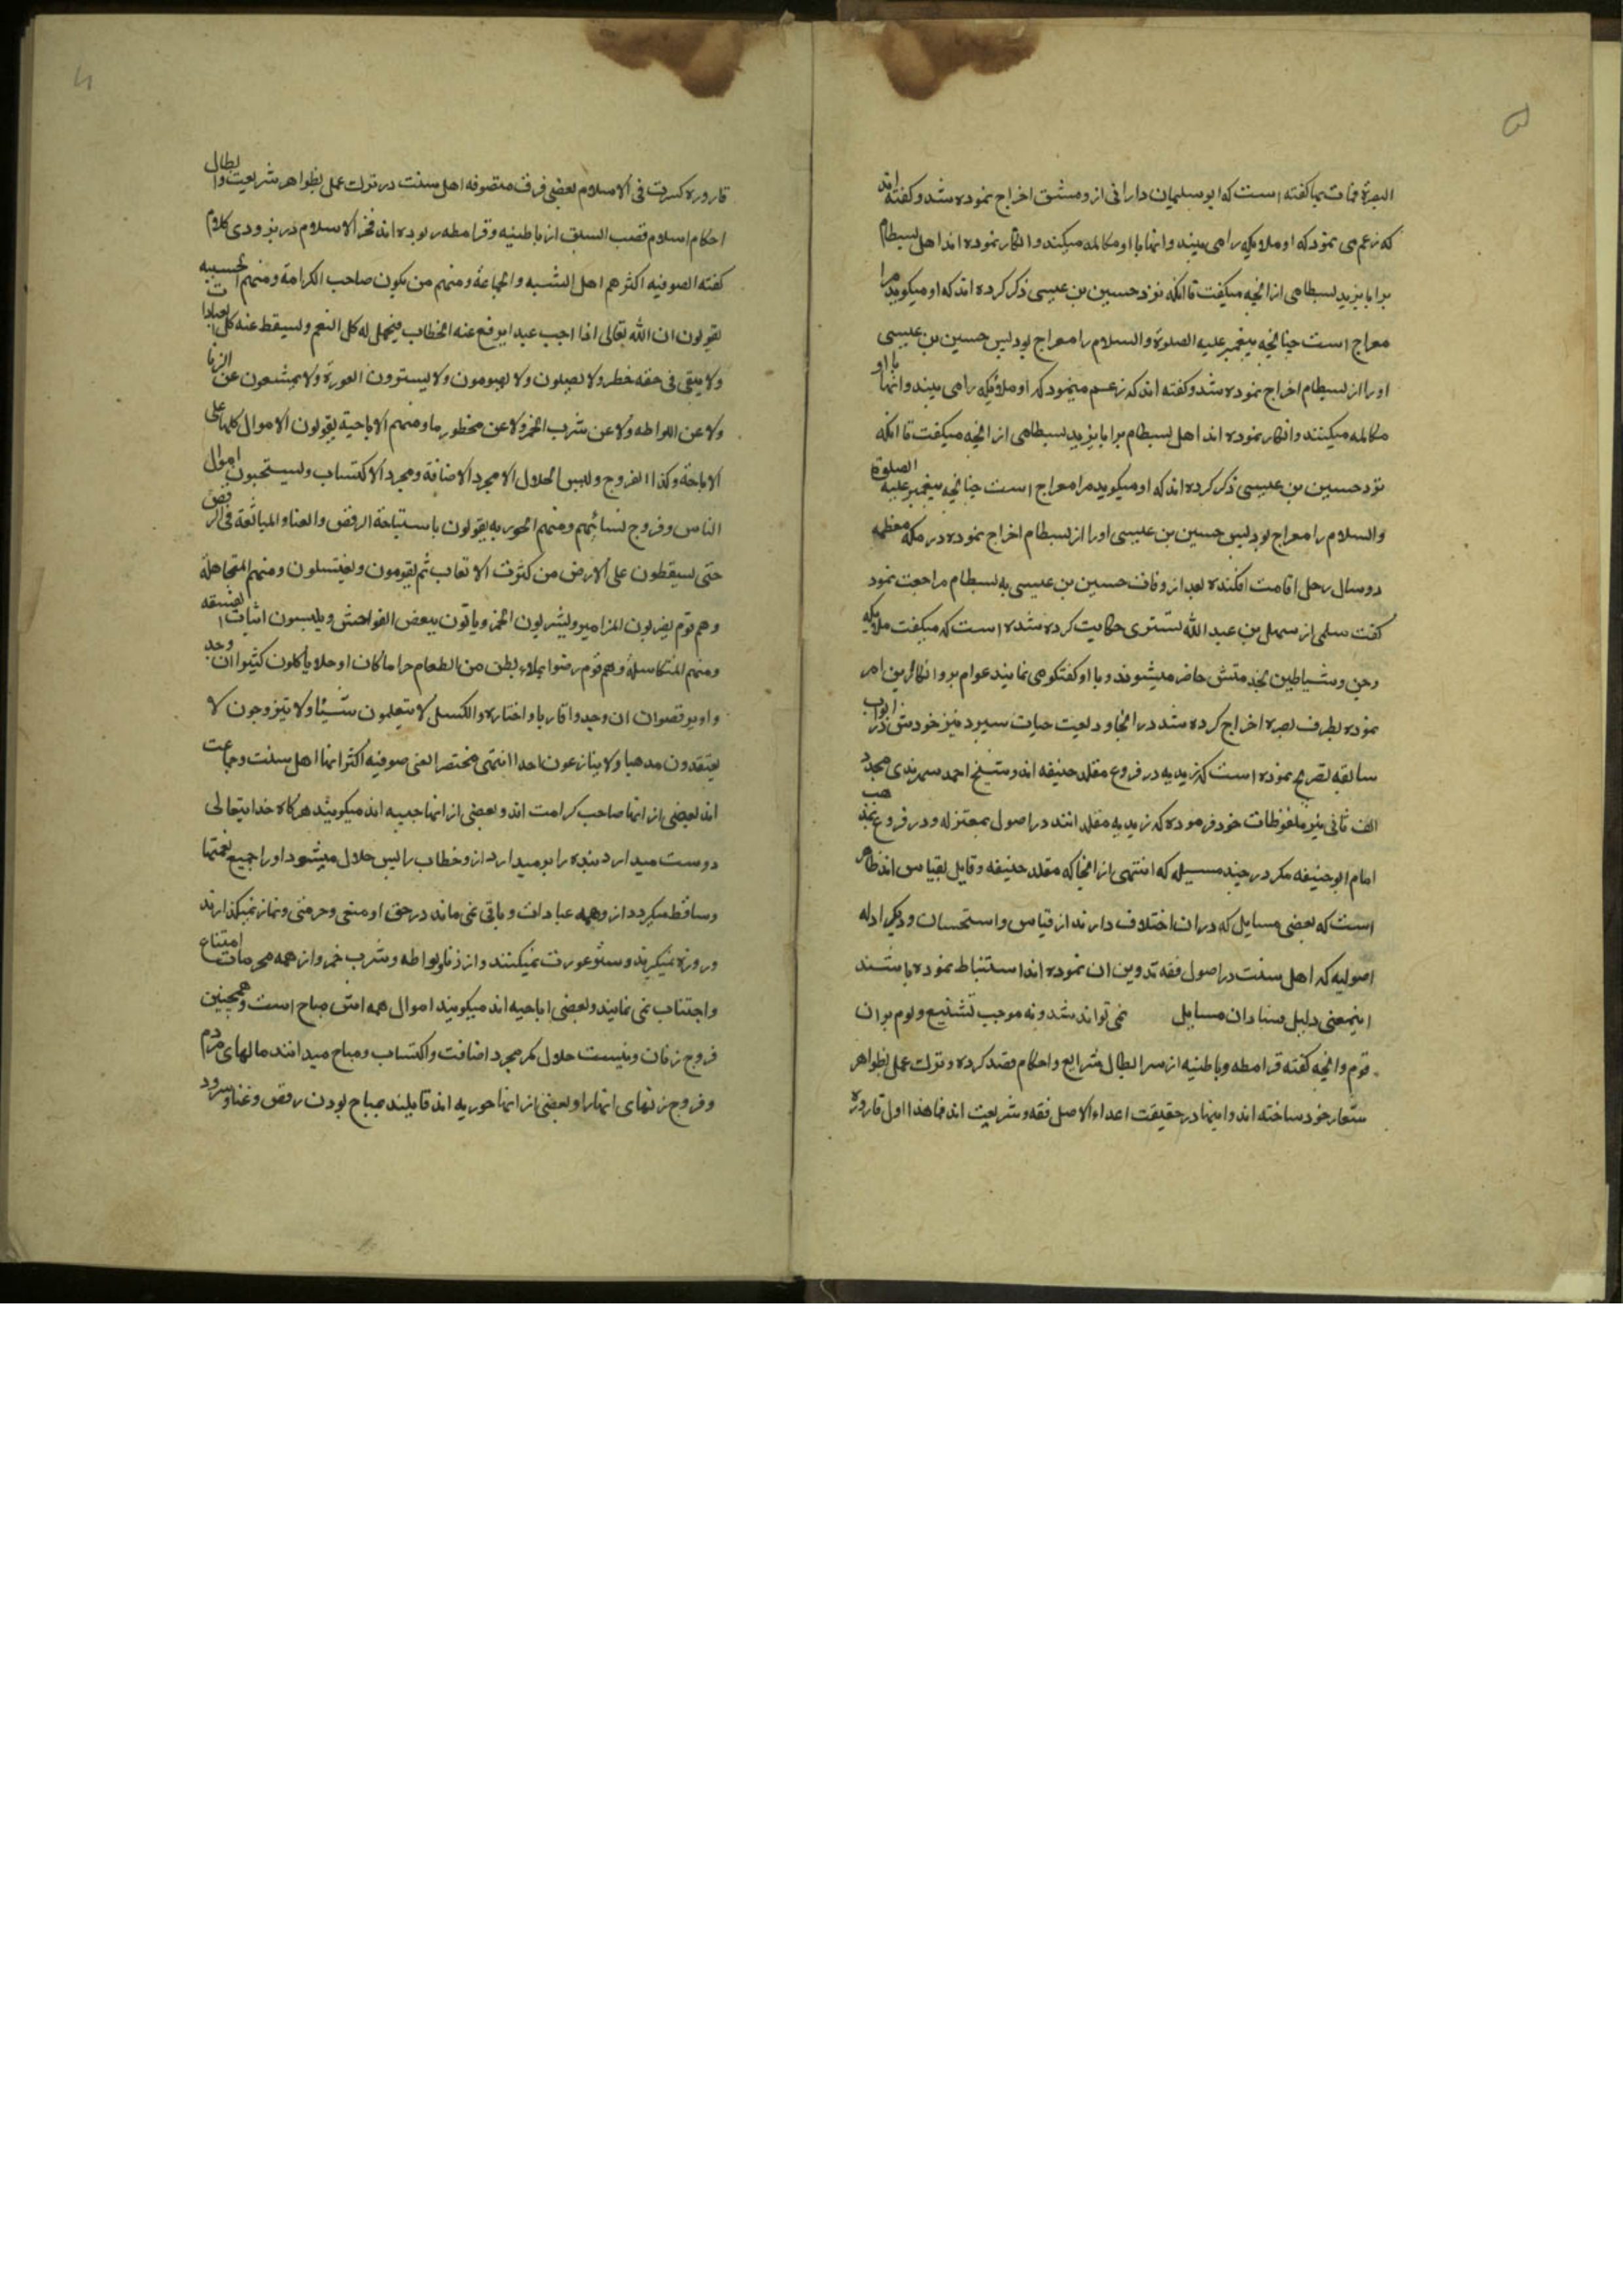 ۵
البصرة فمات بها گفته است که ابو سلیمان دارانی از دمشق اخراج نموده شد و گفته اند
که زعم می نمود که او ملایکه را می بیند و انها با او مکالمه میکنند و انکار نموده اند اهل بسطام
برابا یزید بسطامی از انچه میگفت تا انکه نزد حسین بن عیسی ذکر کرده اند که او میکوید مرا
معراج است چنانچه پیغمبر علیه الصلوة والسلام را معراج بود پس حسین بن عیسی
او را از بسطام اخراج نموده شد و گفته اند که زعم مینمود که او ملائیکه را می بیند و انها با او
مکالمه میکنند و انکار نموده اند اهل بسطام برابا یزید بسطامی از انچه میگفت تا انکه
نزد حسین بن عیسی ذکر کرده اند که او میکوید مرا معراج است چنانچه پیغمبر علیه الصلوة
والسلام را معراج بود پس حسین بن عیسی او را از بسطام اخراج نموده در مکه معظمه
دو سال رحل اقامت افکنده بعد از وفات حسین بن عیسی به بسطام مراجعت نمود
گفت سلمی از سهل بن عبد الله تستری حکایت کرده شده است که میگفت ملایکه
وجن وشیاطین بخدمتش حاضر میشوند و با او کفتکو می نمایند عوام برو انکار این امر
نموده بطرف بصره اخراج کرده شد در انجا ودیعت حیات سپرد نیز خودش در ابواب
سابقه تصریح نموده است که زیدیه در فروع مقلد حنیفه اند وشیخ احمد سرهندی مجدد
الف ثانی نیز ملفوظات خود فرموده که زیدیه مقلد انند در اصول بمعتزله ودر فروع بمذهب
امام ابو حنیفه مکر در چند مسیله که انتهی از انجا که مقلد حنیفه وقایل بقیاس اند ظاهر
است که بعضی مسایل که دران اختلاف دارند از قیاس واستحسان ودیکر ادله
اصولیه که اهل سنت در اصول فقه تدوین ان نموده اند استنباط نموده باشند
اینمعنی دلیل فساد ان مسایل نمی تواند شد ونه موجب تشنیع ولوم بران
قوم وانچه کفته قرامطه وباطنیه از سر ابطال شرایع واحکام قصد کرده وترک عمل بظواهر
شعار خود ساخته اند واینها در حقیقت اعداء الاصل فقه وشریعت اند فما هذا اول قارورة
قاروره کسرت فی الاسلام بعضی فرق متصوفه اهل سنت در ترک عمل بظواهر شریعت وابطال
احکام اسلام قصب السبق از باطنیه وقرامطه ربوده اند فخر الاسلام در بزودی کلام
کفته الصوفیه اکثرهم اهل السنة والجماعة ومنهم من یکون صاحب الکرامة ومنهم الحبیبیه
یقولون ان الله تعالی اذا احب عبدا یرفع عنه الخطاب فیحل له کل النعم ویسقط عنه کل العبادات
ولا یبقی فی حقه خطر ولا یصلون ولا یصومون ولا یسترون العورة ولا یمتنعون عن الزنا
ولا عن اللواطه ولا عن شرب الخمر ولا عن محظور ما ومنهم الاباحیة یقولون الاموال کلها علی
الاباحة وکذا الفروج ولیس الحلال الا مجرد الاضافة ومجرد الاکتساب ویستحبون اموال
الناس وفروج نسائهم ومنهم الحوریه یقولون باستباحة الرقص والغنا والمبالغة فی الرقص
حتی یسقطون علی الارض من کثرت الاتعاب ثم یقومون ویغتسلون ومنهم المتجاهلة
وهم قوم یضربون المزامیر ویشربون الخمر ویاتون ببعض الفواحش ویلبسون اثیاب الفسقه
ومنهم المتکاسلة وهم قوم رضوا بملاء بطن من الطعام حراما کان او حلالا یاکلون کثیرا ان وجد
واویرقصوان ان وجدوا قاربا واختاره والکسل لا یتعلمون شیئا ولا یتزوجون لا
یعتقدون مذهبا ولا ینازعون احدا انتهی مختصرا یعنی صوفیه اکثر انها اهل سنت وجماعت
اند بعضی از انها صاحب کرامت اند وبعضی از انها حبیبیه اند میکویند هرکاه خدایتعالی
دوست میدارد بنده را برمیدارد ازو خطاب را پس حلال میشود اورا جمیع نعمتها
وساقط میکردد ازو همه عبادات وباقی نمی ماند در حق او منعی وحرمتی ونماز نمیکذارند
وروزه نمیکیرند وستر عورت نمیکنند واز زنا ولواطه وشرب خمر واز همه محرمات امتناع
واجتناب نمی نمایند وبعضی اباحیه اند میکویند اموال همه اش مباح است وهمچنین
فروج زنان ونیست حلال مکر مجرد اضافت واکتساب ومباح میدانند مالهای مردم
وفروج زنهای انها را وبعضی از انها حوریه اند قایلند بمباح بودن رقص وغنا وسرود